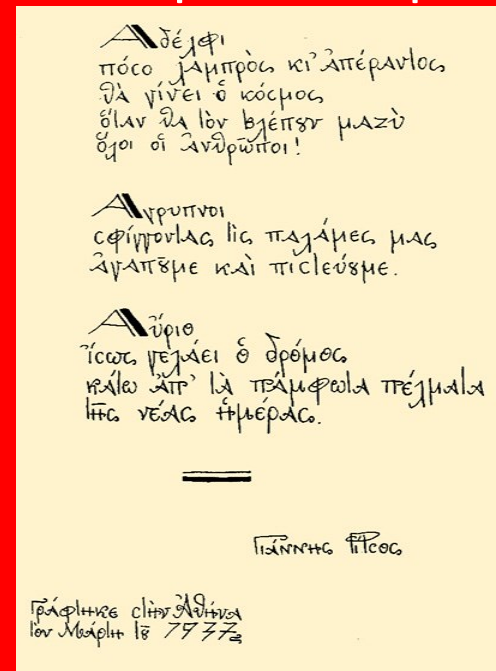 Ἀδέλφι
πόσο λαμπρὸς κι' ἀπέραντος
θὰ γίνει ὁ κόσμος
ὅταν θὰ τὸν βλέπουν μαζὺ
ὅλοι οἱ ἄνθρωποι!
Ἄγρυπνοι
σφίγγοντας τὶς παλάμες μας
ἀγαποῦμε καὶ πιστεύουμε.
Αὔριο
ἴσως γελάει ὁ δρόμος
κάτω ἀπ' τὰ πάμφωτα πέλματα
τῆς νέας ἡμέρας.
Γιάννης Ρίτσος
Γράφτηκε στὴν Ἀθήνα
τὸν Μάρτη τοῦ